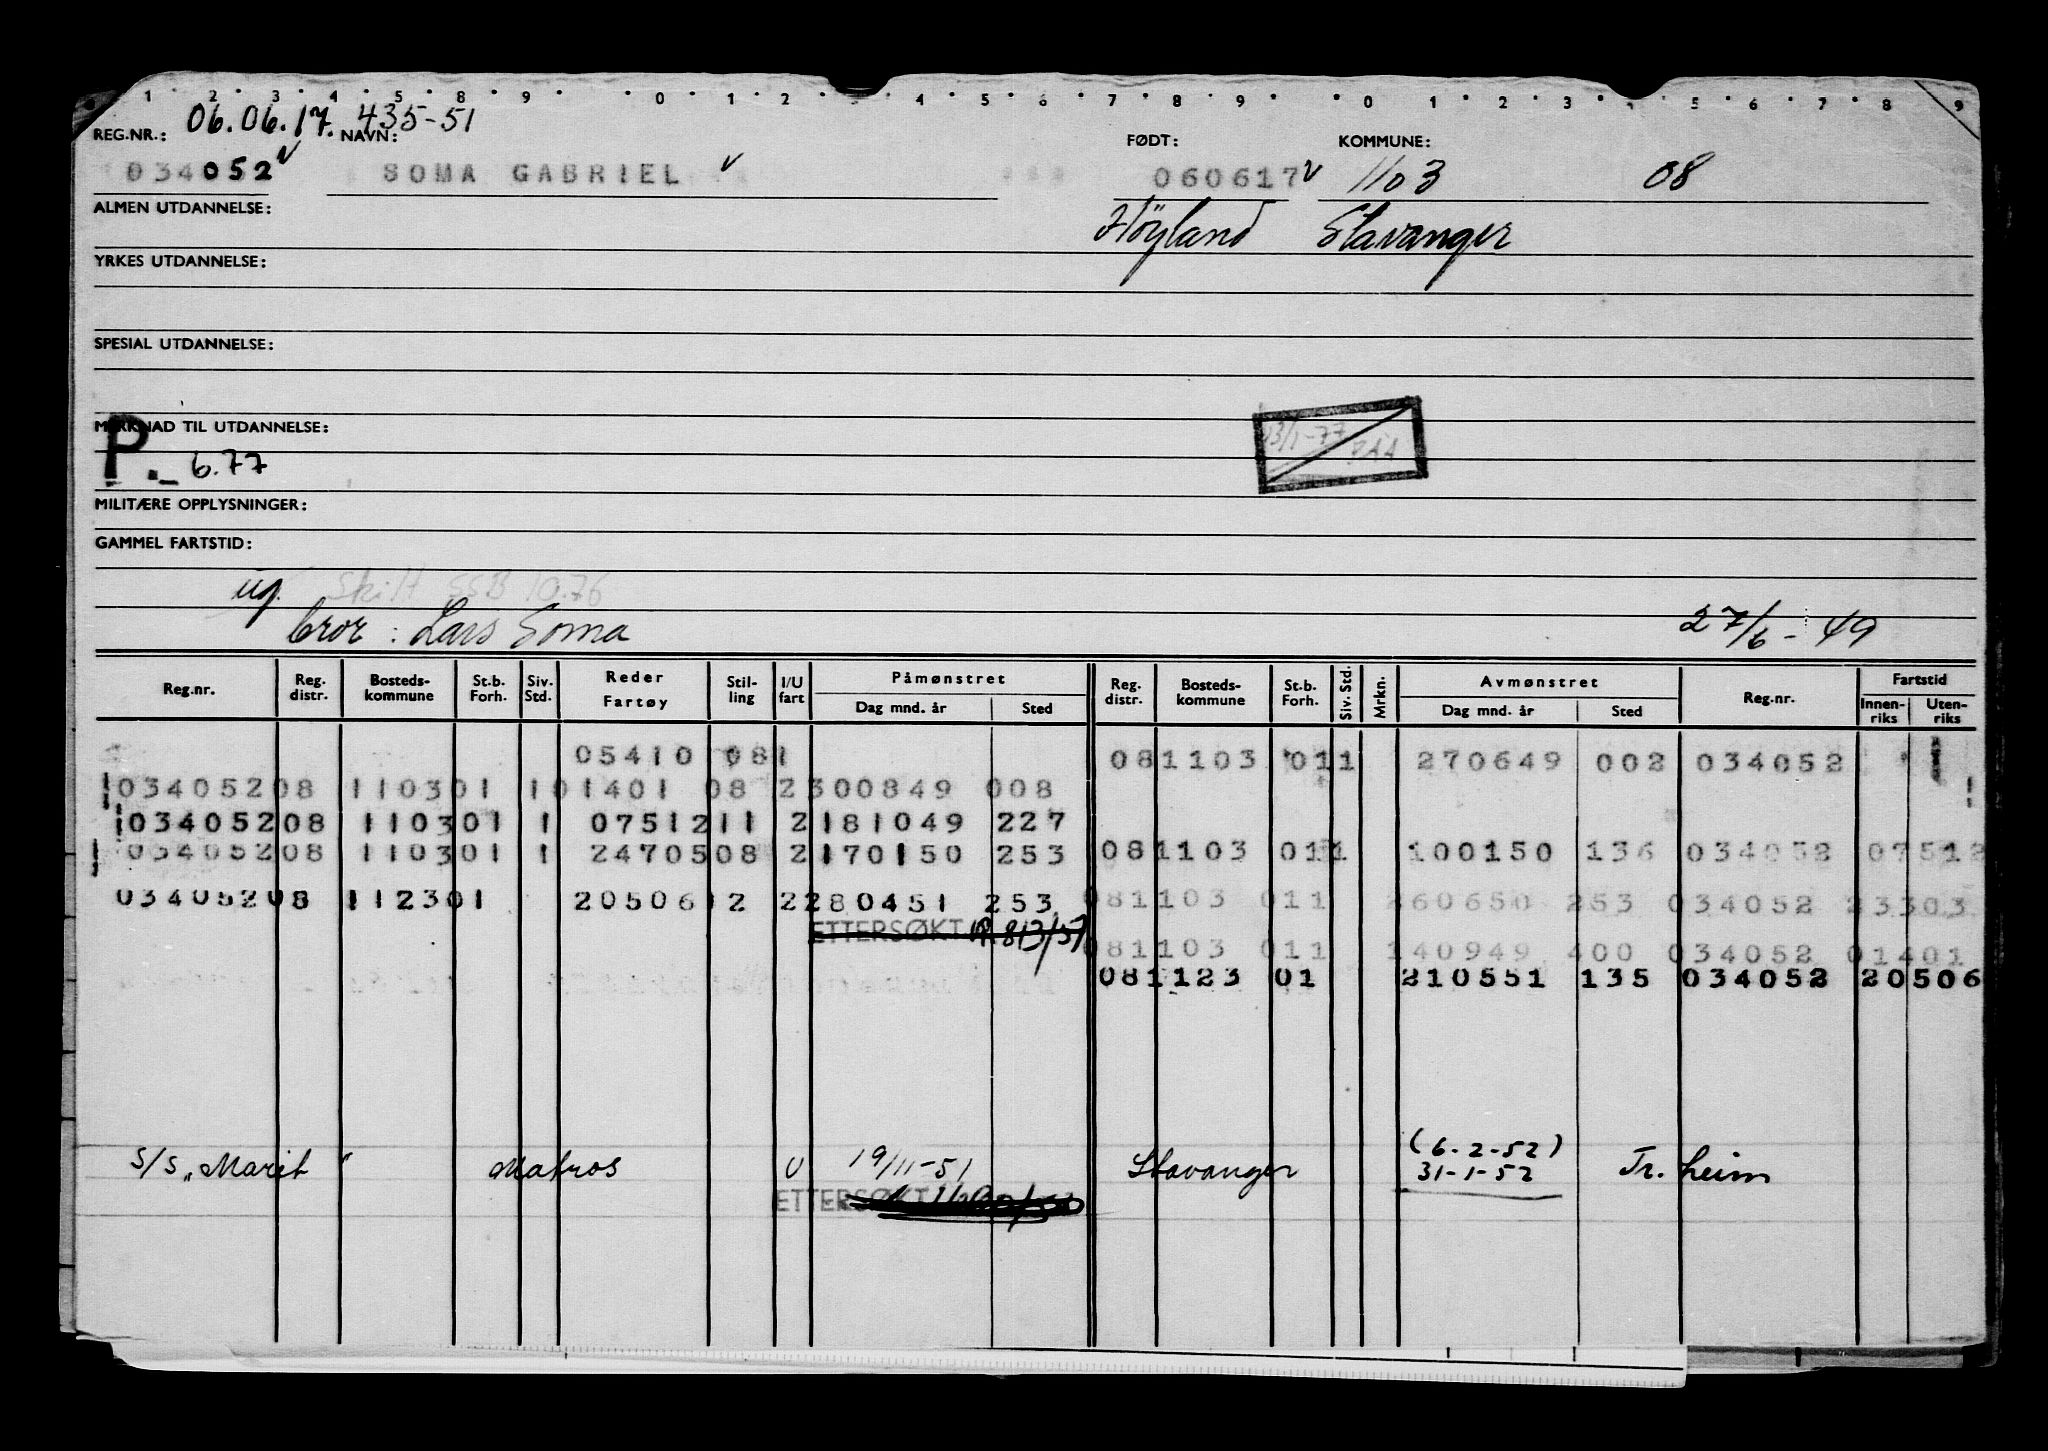 1 2 3 4 5 8 9 0 1 2 3 4 5 6 7 8 9 0 1 2 3 4 5 6 7 8 9
06.06.17. 435-51
REG.NR.: NAVN: FØDT: KOMMUNE:
034052 SOMA GABRIEL 060617 1103 08
ALMEN UTDANNELSE: Höyland Stavanger
YRKES UTDANNELSE:
SPESIAL UTDANNELSE:
MERKNAD TIL UTDANNELSE:
P. 6.77
MILITÆRE OPPLYSNINGER:
GAMMEL FARTSTID:
ug. Skilt SSB 10.76
bror: Lars Soma 27/6-49
Reg.nr. Reg. distr. Bosteds-kommune St.b. Forh. Siv. Std. Reder Fartøy Stil-ling I/U fart Påmønstret Dag mnd. år Sted Reg. distr. Bosteds-kommune St.b. Forh. Siv. Std. Mrkn. Avmønstret Dag mnd. år Sted Reg.nr. Fartstid Innen-riks Uten-riks
05410 081 081103 011 270649 002 034052
03405208 110301 101401 08 2300849 008
03405208 110301 1 0751211 2181049 227
03405208 110301 1 2470508 2170150 253 081103 011 100150 136 034052 07512
03405208 112301 2050612 2280451 253 081103 011 260650 253 034052 23303
ETTERSØKT 8/3/57
081103 011 140949 400 034052 01401
081123 01 210551 135 034052 20506
S/S "Marit" Matros U 19/11-51 Stavanger (6-2-52) 31-1-52 Tr. heim
ETTERSØKT